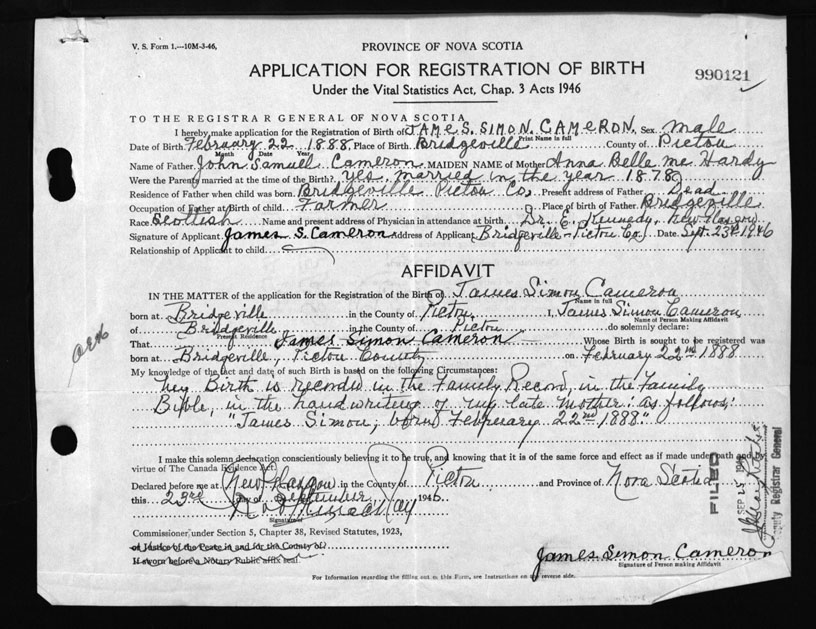 V. S. Form 1.—10M-3-46,
PROVINCE OF NOVA SCOTIA
APPLICATION FOR REGISTRATION OF BIRTH
990121
Under the Vital Statistics Act, Chap. 3 Acts 1946
TO THE REGISTRAR GENERAL OF NOVA SCOTIA
I hereby make application for the Registration of Birth of JAMES SIMON CAMERON Sex male
Print Name in full
Date of Birth February 22 1888 Place of Birth Bridgeville County of Pictou
Month Date Year
Name of Father John Samuel Cameron MAIDEN NAME of Mother Anna Belle Mc Hardy
Were the Parents married at the time of the Birth? Yes, married in the year 1878
Residence of Father when child was born Bridgeville Pictou Co, Present address of Father Dead
Occupation of Father at Birth of child Farmer Place of birth of Father Bridgeville
Race Scottish Name and present address of Physician in attendance at birth Dr. E. Kennedy, New Glasgow
Signature of Applicant James S. Cameron Address of Applicant Bridgeville Pictou Co, Date Sept. 23rd 1946
Relationship of Applicant to child
AFFIDAVIT
IN THE MATTER of the application for the Registration of the Birth of James Simon Cameron
Name in full
born at Bridgeville in the County of Pictou I, James Simon Cameron
Name of Person Making Affidavit
of Bridgeville in the County of Pictou do solemnly declare:
Present Residence
That James Simon Cameron Whose Birth is sought to be registered was
born at Bridgeville, Pictou County on February 22nd 1888.
My knowledge of the fact and date of such Birth is based on the following Circumstances:
my Birth is recorded in the Family Record, in the Family
Bible, in the handwriting of my late mother as follows,
"James Simon, born February 22nd 1888"
I make this solemn declaration conscientiously believing it to be true, and knowing that it is of the same force and effect as if made under oath
virtue of The Canada Evidence Act.
Declared before me at New Glasgow in the County of Pictou and Province of Nova Scotia
this 23rd day of September 1946
Signature of
Commissioner under Section 5, Chapter 38, Revised Statutes, 1923,
or Justice of the Peace in and for the County of
If sworn before a Notary Public affix seal.
James Simon Cameron
Signature of Person making Affidavit
For Information regarding the filling out of this Form, see Instructions on reverse side.
FILED
SEP 25 1946
Deputy Registrar General